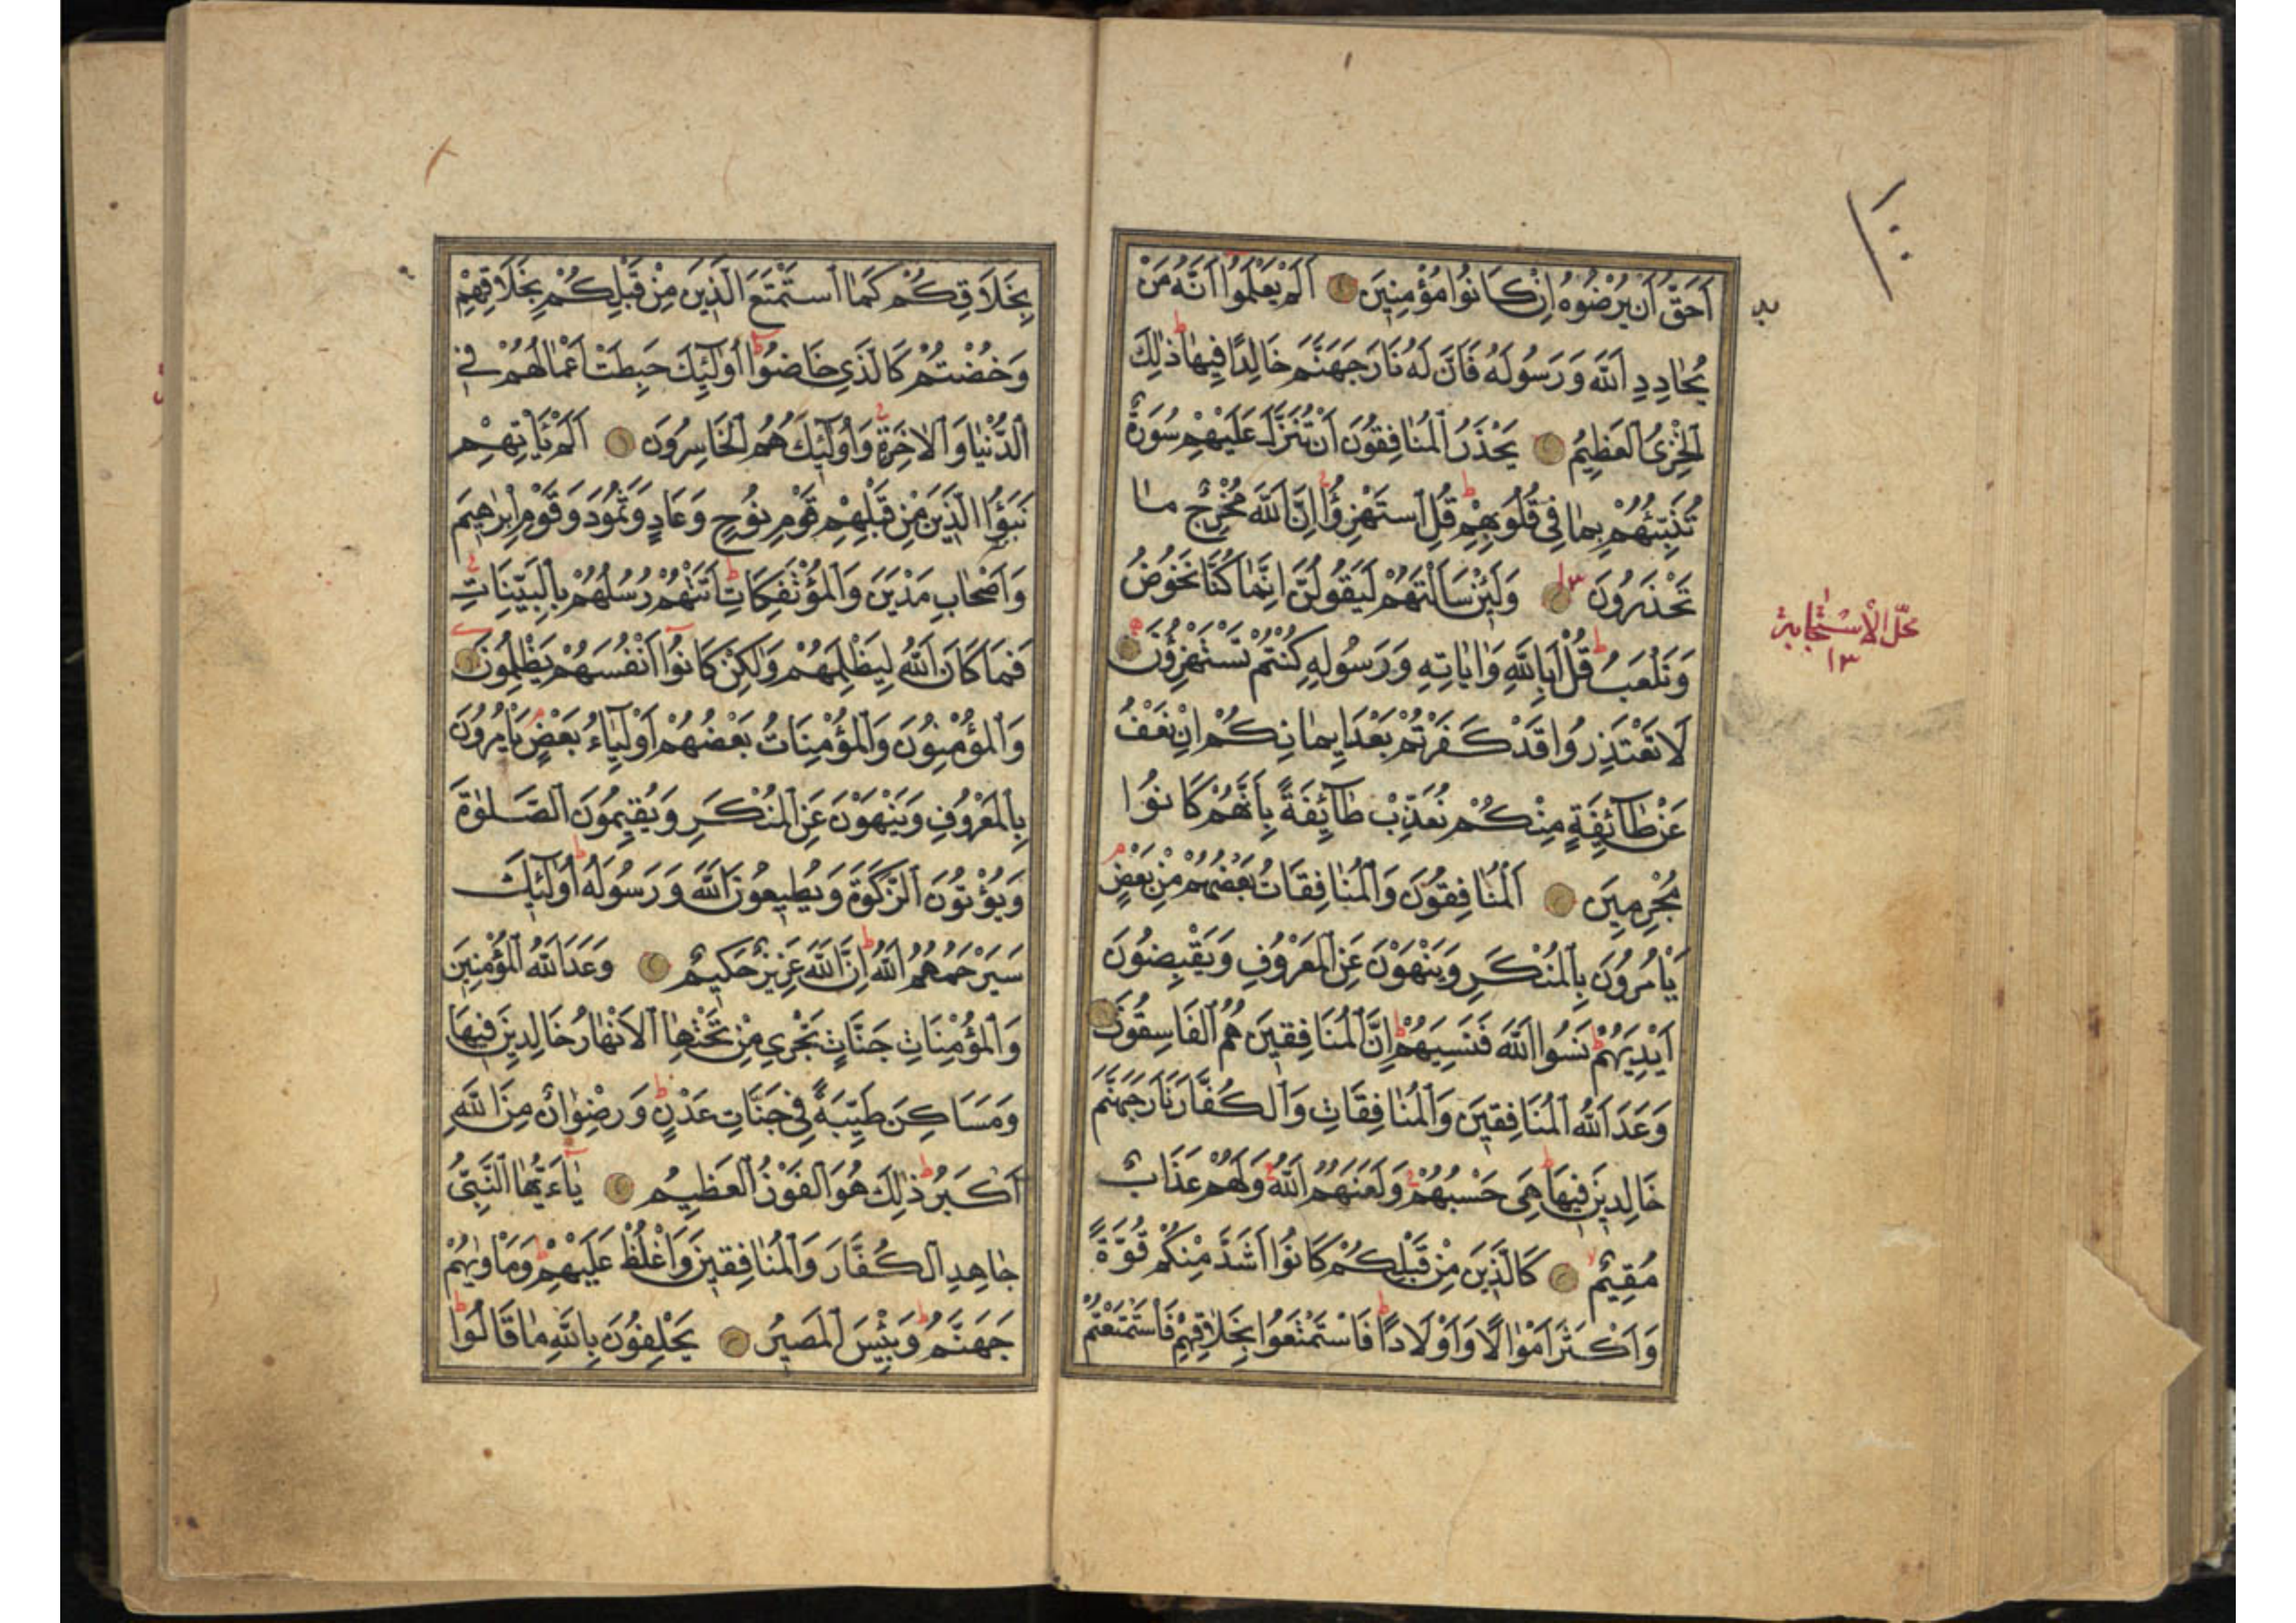 ١٠٠
اَحَقُّ اَنْ يُرْضُوهُ اِنْ كَانُوا مُؤْمِنِينَ اَلَمْ يَعْلَمُوا اَنَّهُ مَنْ
يُحَادِدِ اللّٰهَ وَرَسُولَهُ فَاَنَّ لَهُ نَارَ جَهَنَّمَ خَالِدًا فِيهَا ط ذٰلِكَ
الْخِزْىُ الْعَظِيمُ يَحْذَرُ الْمُنَافِقُونَ اَنْ تُنَزَّلَ عَلَيْهِمْ سُورَةٌ
تُنَبِّئُهُمْ بِمَا فِى قُلُوبِهِمْ ط قُلِ اسْتَهْزِؤُا اِنَّ اللّٰهَ مُخْرِجٌ مَا
تَحْذَرُونَ ١٣ وَلَئِنْ سَاَلْتَهُمْ لَيَقُولُنَّ اِنَّمَا كُنَّا نَخُوضُ
وَنَلْعَبُ ط قُلْ اَبِاللّٰهِ وَاٰيَاتِهِ وَرَسُولِهِ كُنْتُمْ تَسْتَهْزِؤُنَ
لَا تَعْتَذِرُوا قَدْ كَفَرْتُمْ بَعْدَ اِيمَانِكُمْ اِنْ نَعْفُ
عَنْ طَآئِفَةٍ مِنْكُمْ نُعَذِّبْ طَآئِفَةً بِاَنَّهُمْ كَانُوا
مُجْرِمِينَ اَلْمُنَافِقُونَ وَالْمُنَافِقَاتُ بَعْضُهُمْ مِنْ بَعْضٍ م
يَاْمُرُونَ بِالْمُنْكَرِ وَيَنْهَوْنَ عَنِ الْمَعْرُوفِ وَيَقْبِضُونَ
اَيْدِيَهُمْ ط نَسُوا اللّٰهَ فَنَسِيَهُمْ ط اِنَّ الْمُنَافِقِينَ هُمُ الْفَاسِقُونَ
وَعَدَ اللّٰهُ الْمُنَافِقِينَ وَالْمُنَافِقَاتِ وَالْكُفَّارَ نَارَ جَهَنَّمَ
خَالِدِينَ فِيهَا ط هِىَ حَسْبُهُمْ وَلَعَنَهُمُ اللّٰهُ وَلَهُمْ عَذَابٌ
مُقِيمٌ لا كَالَّذِينَ مِنْ قَبْلِكُمْ كَانُوا اَشَدَّ مِنْكُمْ قُوَّةً
وَاَكْثَرَ اَمْوَالًا وَاَوْلَادًا ط فَاسْتَمْتَعُوا بِخَلَاقِهِمْ فَاسْتَمْتَعْتُمْ
١٣
بِخَلَاقِكُمْ كَمَا اسْتَمْتَعَ الَّذِينَ مِنْ قَبْلِكُمْ بِخَلَاقِهِمْ
وَخُضْتُمْ كَالَّذِى خَاضُوا ط اُولٰٓئِكَ حَبِطَتْ اَعْمَالُهُمْ فِى
الدُّنْيَا وَالْاٰخِرَةِ وَاُولٰٓئِكَ هُمُ الْخَاسِرُونَ اَلَمْ يَاْتِهِمْ
نَبَؤُا الَّذِينَ مِنْ قَبْلِهِمْ قَوْمِ نُوحٍ وَعَادٍ وَثَمُودَ وَقَوْمِ اِبْرٰهِيمَ
وَاَصْحَابِ مَدْيَنَ وَالْمُؤْتَفِكَاتِ ط اَتَتْهُمْ رُسُلُهُمْ بِالْبَيِّنَاتِ
فَمَا كَانَ اللّٰهُ لِيَظْلِمَهُمْ وَلٰكِنْ كَانُوا اَنْفُسَهُمْ يَظْلِمُونَ
وَالْمُؤْمِنُونَ وَالْمُؤْمِنَاتُ بَعْضُهُمْ اَوْلِيَآءُ بَعْضٍ م يَاْمُرُونَ
بِالْمَعْرُوفِ وَيَنْهَوْنَ عَنِ الْمُنْكَرِ وَيُقِيمُونَ الصَّلٰوةَ
وَيُؤْتُونَ الزَّكٰوةَ وَيُطِيعُونَ اللّٰهَ وَرَسُولَهُ ط اُولٰٓئِكَ
سَيَرْحَمُهُمُ اللّٰهُ ط اِنَّ اللّٰهَ عَزِيزٌ حَكِيمٌ وَعَدَ اللّٰهُ الْمُؤْمِنِينَ
وَالْمُؤْمِنَاتِ جَنَّاتٍ تَجْرِى مِنْ تَحْتِهَا الْاَنْهَارُ خَالِدِينَ فِيهَا
وَمَسَاكِنَ طَيِّبَةً فِى جَنَّاتِ عَدْنٍ ط وَرِضْوَانٌ مِنَ اللّٰهِ
اَكْبَرُ ط ذٰلِكَ هُوَ الْفَوْزُ الْعَظِيمُ يَآءَيُّهَا النَّبِىُّ
جَاهِدِ الْكُفَّارَ وَالْمُنَافِقِينَ وَاغْلُظْ عَلَيْهِمْ ط وَمَاْوٰيهُمْ
جَهَنَّمُ ط وَبِئْسَ الْمَصِيرُ يَحْلِفُونَ بِاللّٰهِ مَا قَالُوا ط